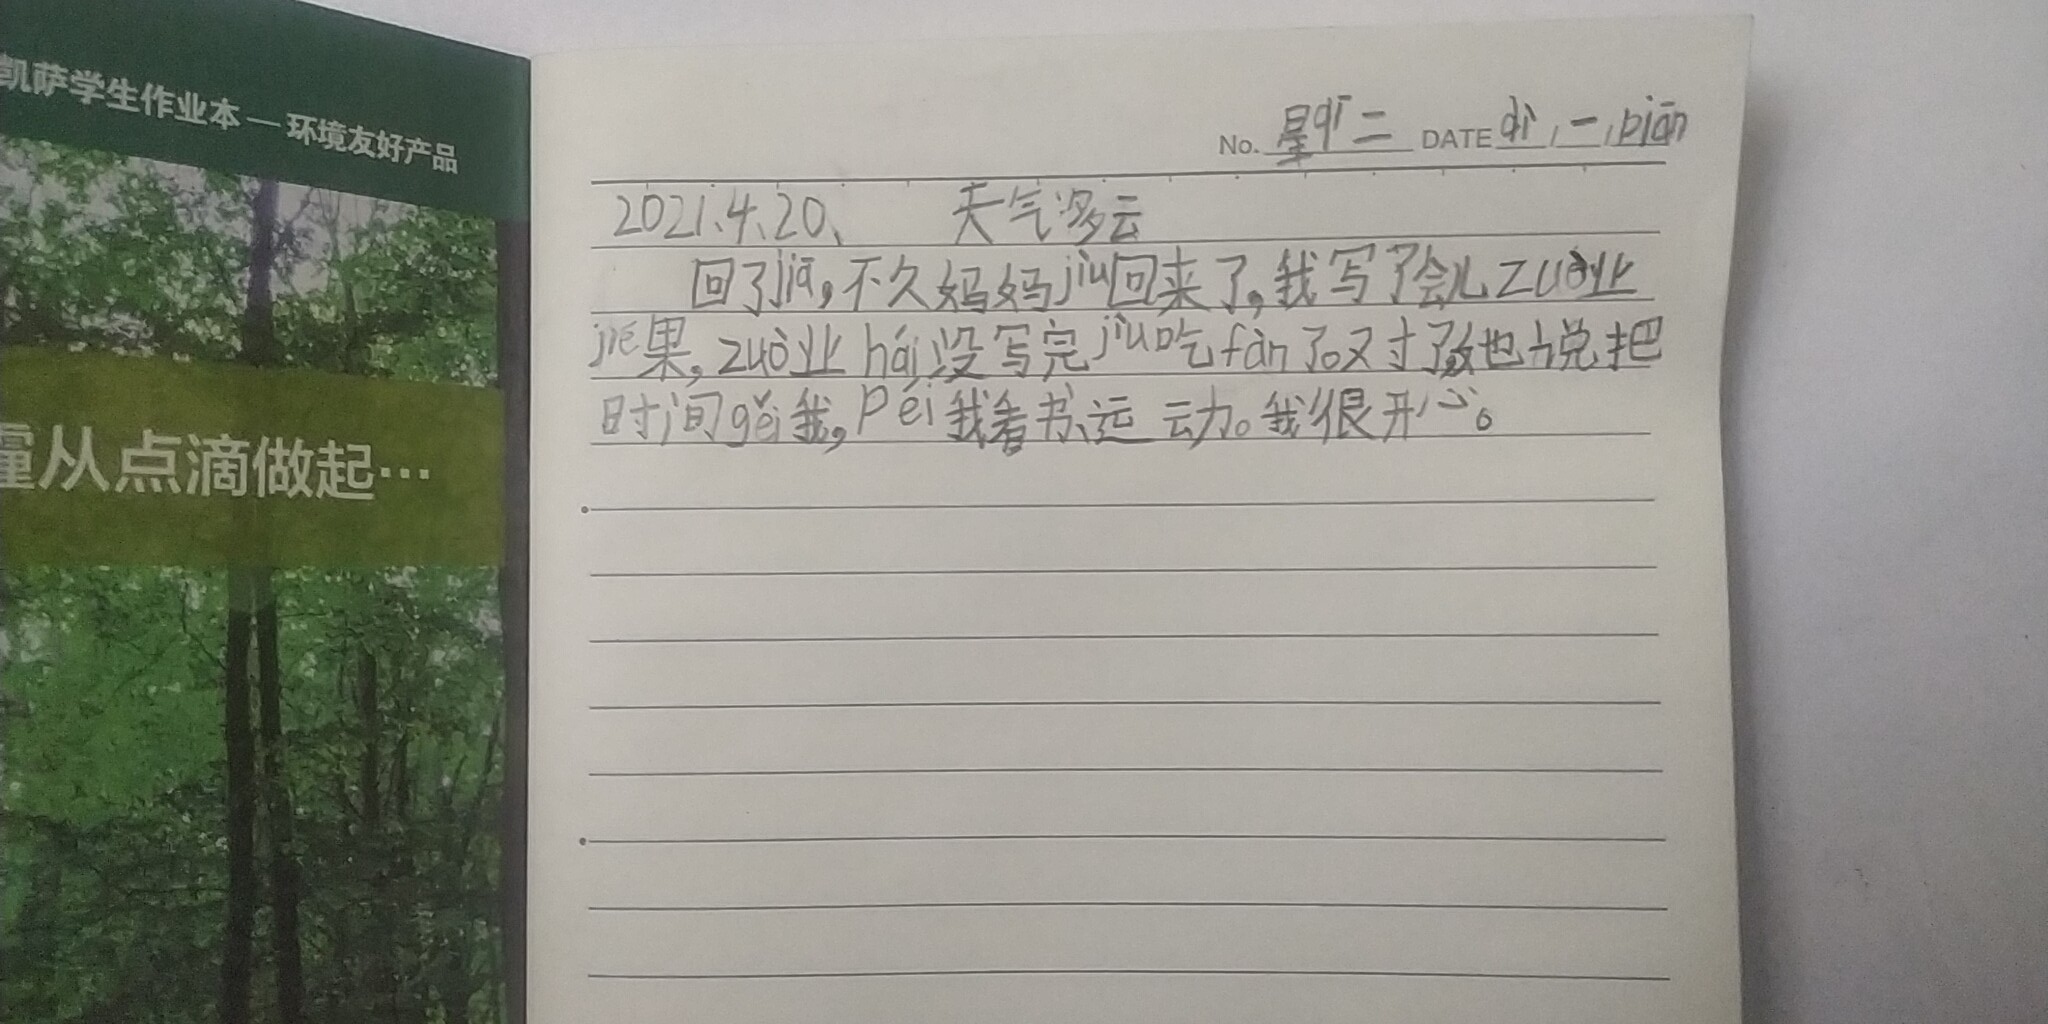 凯萨学生作业本—环境友好产品
霾从点滴做起…
No. 星qī二 DATE dì, 一, piān
2021.4.20、 天气多云
回了jiā，不久妈妈jiù回来了，我写了会儿zuò业
jié果，zuò业hái没写完jiù吃fàn了。又寸了，也说把
时间gěi我，péi我看书、运动。我很开心。